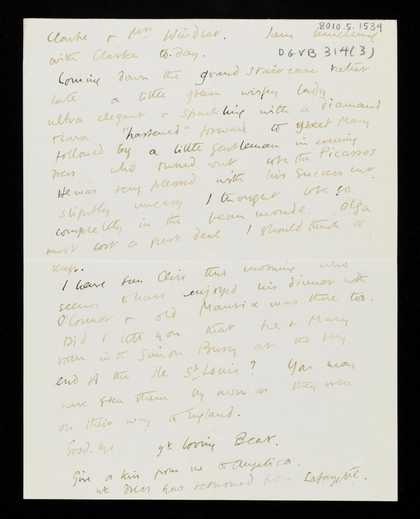 8010.5.1534
DGVB 314(3)
Clarke & Mrs Windsor. I am lunching
with Clarke to-day.
Coming down the grand staircase rather
late a little green wispy lady
ultra elegant & sparkling with a diamond
tiara "hastened" forward to greet Mary
followed by a little gentleman in evening
dress who turned out to be the Picassos
He was very pleased with his success but
slightly uneasy I thought to be so
completely in the beau monde. Olga
must cost a great deal I should think to
keep.
I have seen Clive this morning who
seems to have enjoyed his dinner with
O'Connor & old Matisse was there too.
Did I tell you that he & Mary
ran into Simon Bussy at the very
end of the Ile St Louis? You may
have seen them by now as they were
on their way to England.
Good-bye yr loving Bear.
Give a kiss from me to Angelica.
yr dress has returned from Lafayette.